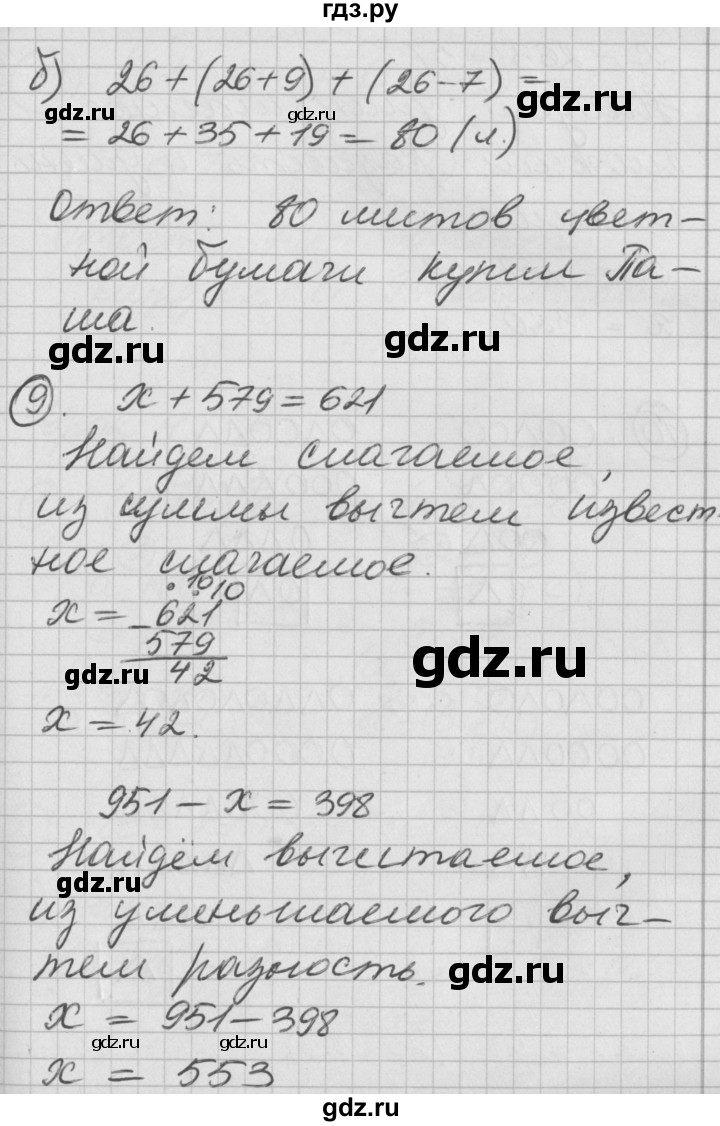 гдз.ру
б) 26 + (26 + 9) + (26 - 7) =
gdz.ru gdz.ru gdz.ru
= 26 + 35 + 19 = 80 (л.)
Ответ: 80 листов цвет-
ной бумаги купил Па-
ша.
gdz.ru gdz.ru
9. x + 579 = 621
Найдем слагаемое,
из суммы вычтем извест
ное слагаемое.
10 10
x = _ 621
579
gdz.ru 42 gdz.ru
x = 42.
951 - x = 398
Найдём вычитаемое,
gdz.ru
из уменьшаемого выч-
тем разность.
gdz.ru
x = 951 - 398
gdz.ru gdz.ru
x = 553
gdz.ru